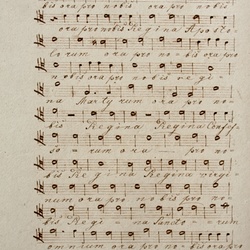 bis ora pro nobis ora pro nobis
ora pro nobis Regina Aposto
lorum ora pro nobis ora pro
nobis ora pro nobis regi
na Martyrum ora pro nobis
bis Regina Regina Confes
sorum ora pro no
bis Regina Regina virgi
num ora pro nobis pro no
bis Regina Sanctorum
omnium ora pro nobis ora